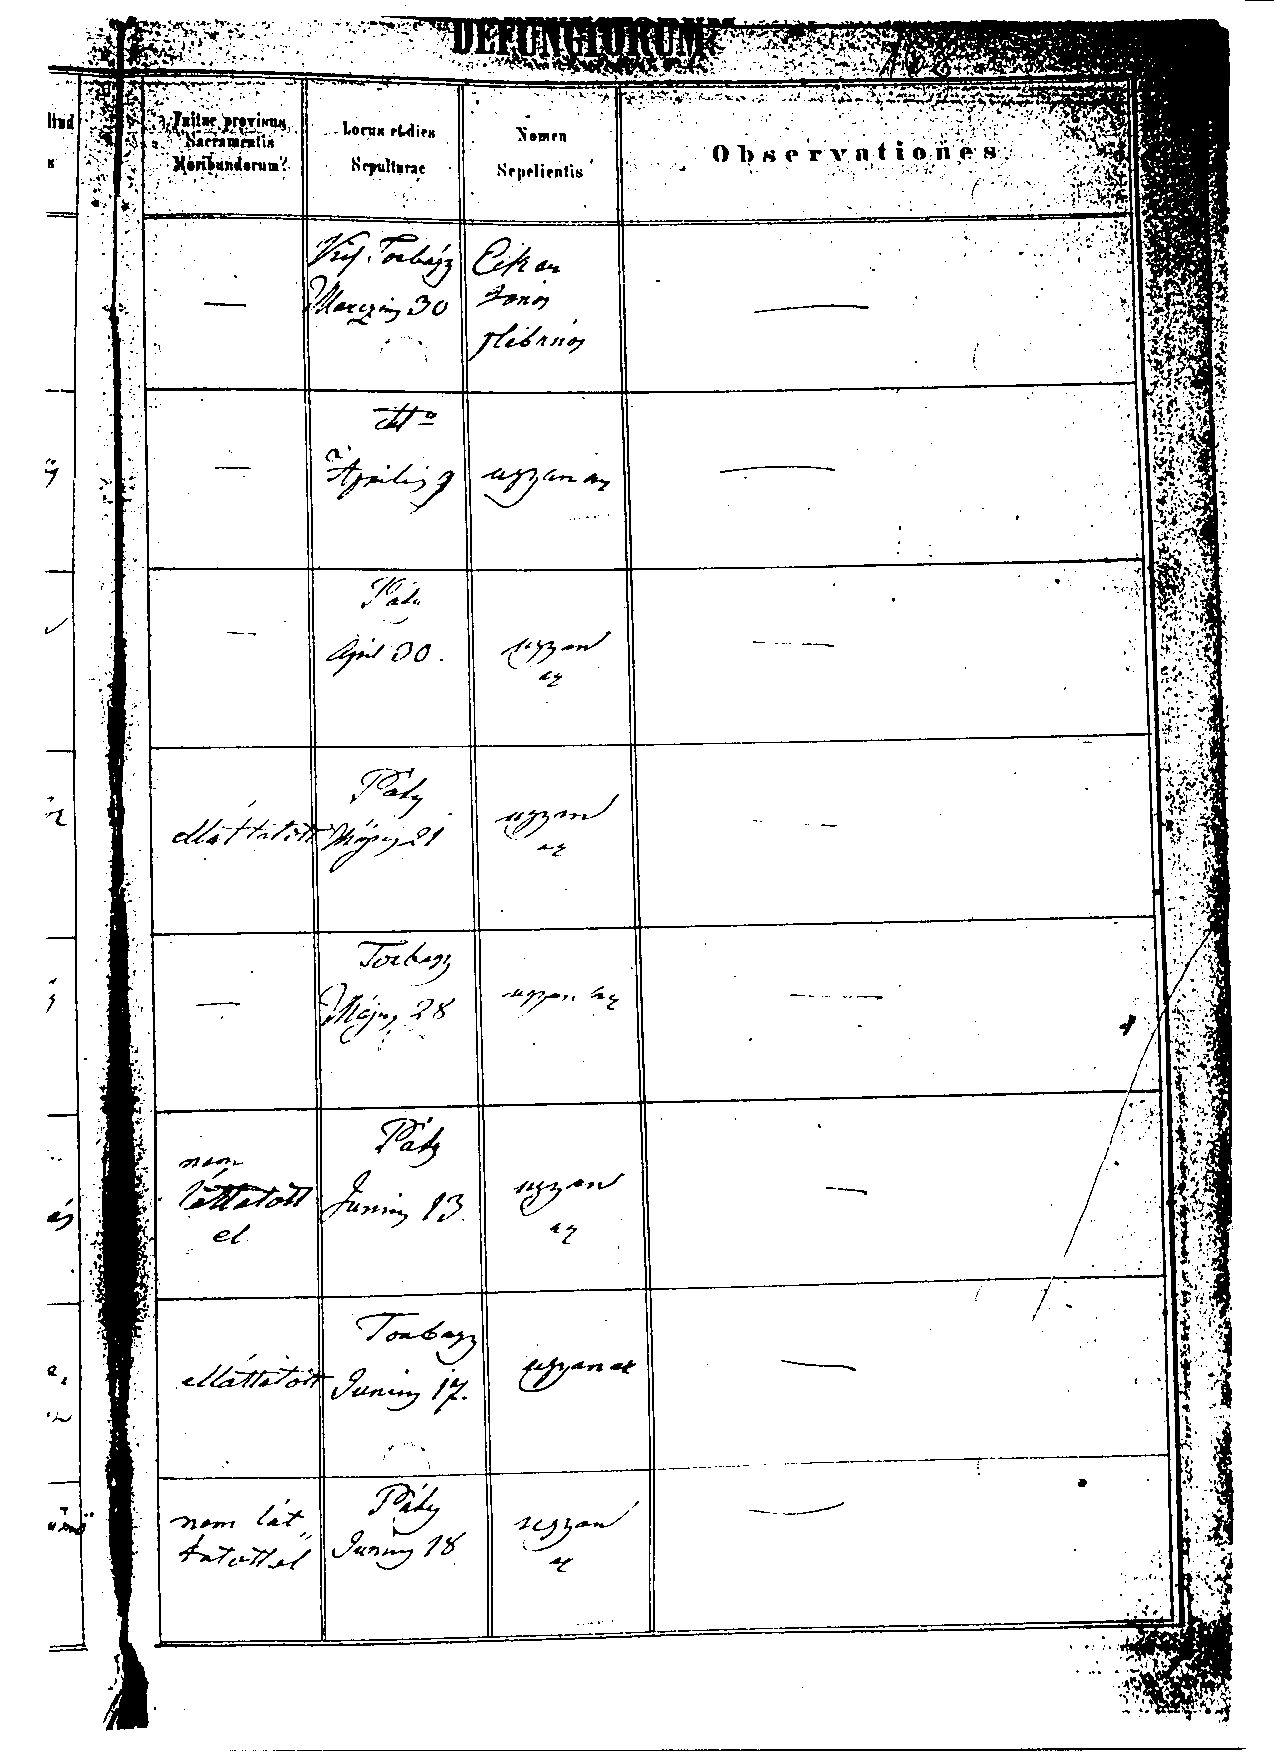 DEFUNCTORUM
Fuitne provisus
Sacramentis
Moribundorum?
Locus et dies
Sepulturae
Nomen
Sepelientis
Observationes
—
Torbágy
30
János
plébános
—
—
Aprilis 9
ugyan az
—
Páty
—
April 30.
ugyan
az
—
Páty
elláttatott
Május 21
ugyan
az
—
Torbágy
—
Május 28
ugyan az
—
Páty
nem
láttatott
el
Junius 13.
ugyan
az
—
Torbágy
elláttatott
Junius 17.
ugyan az
—
Páty
nem lát
tatott el
Junius 18
ugyan
az
—